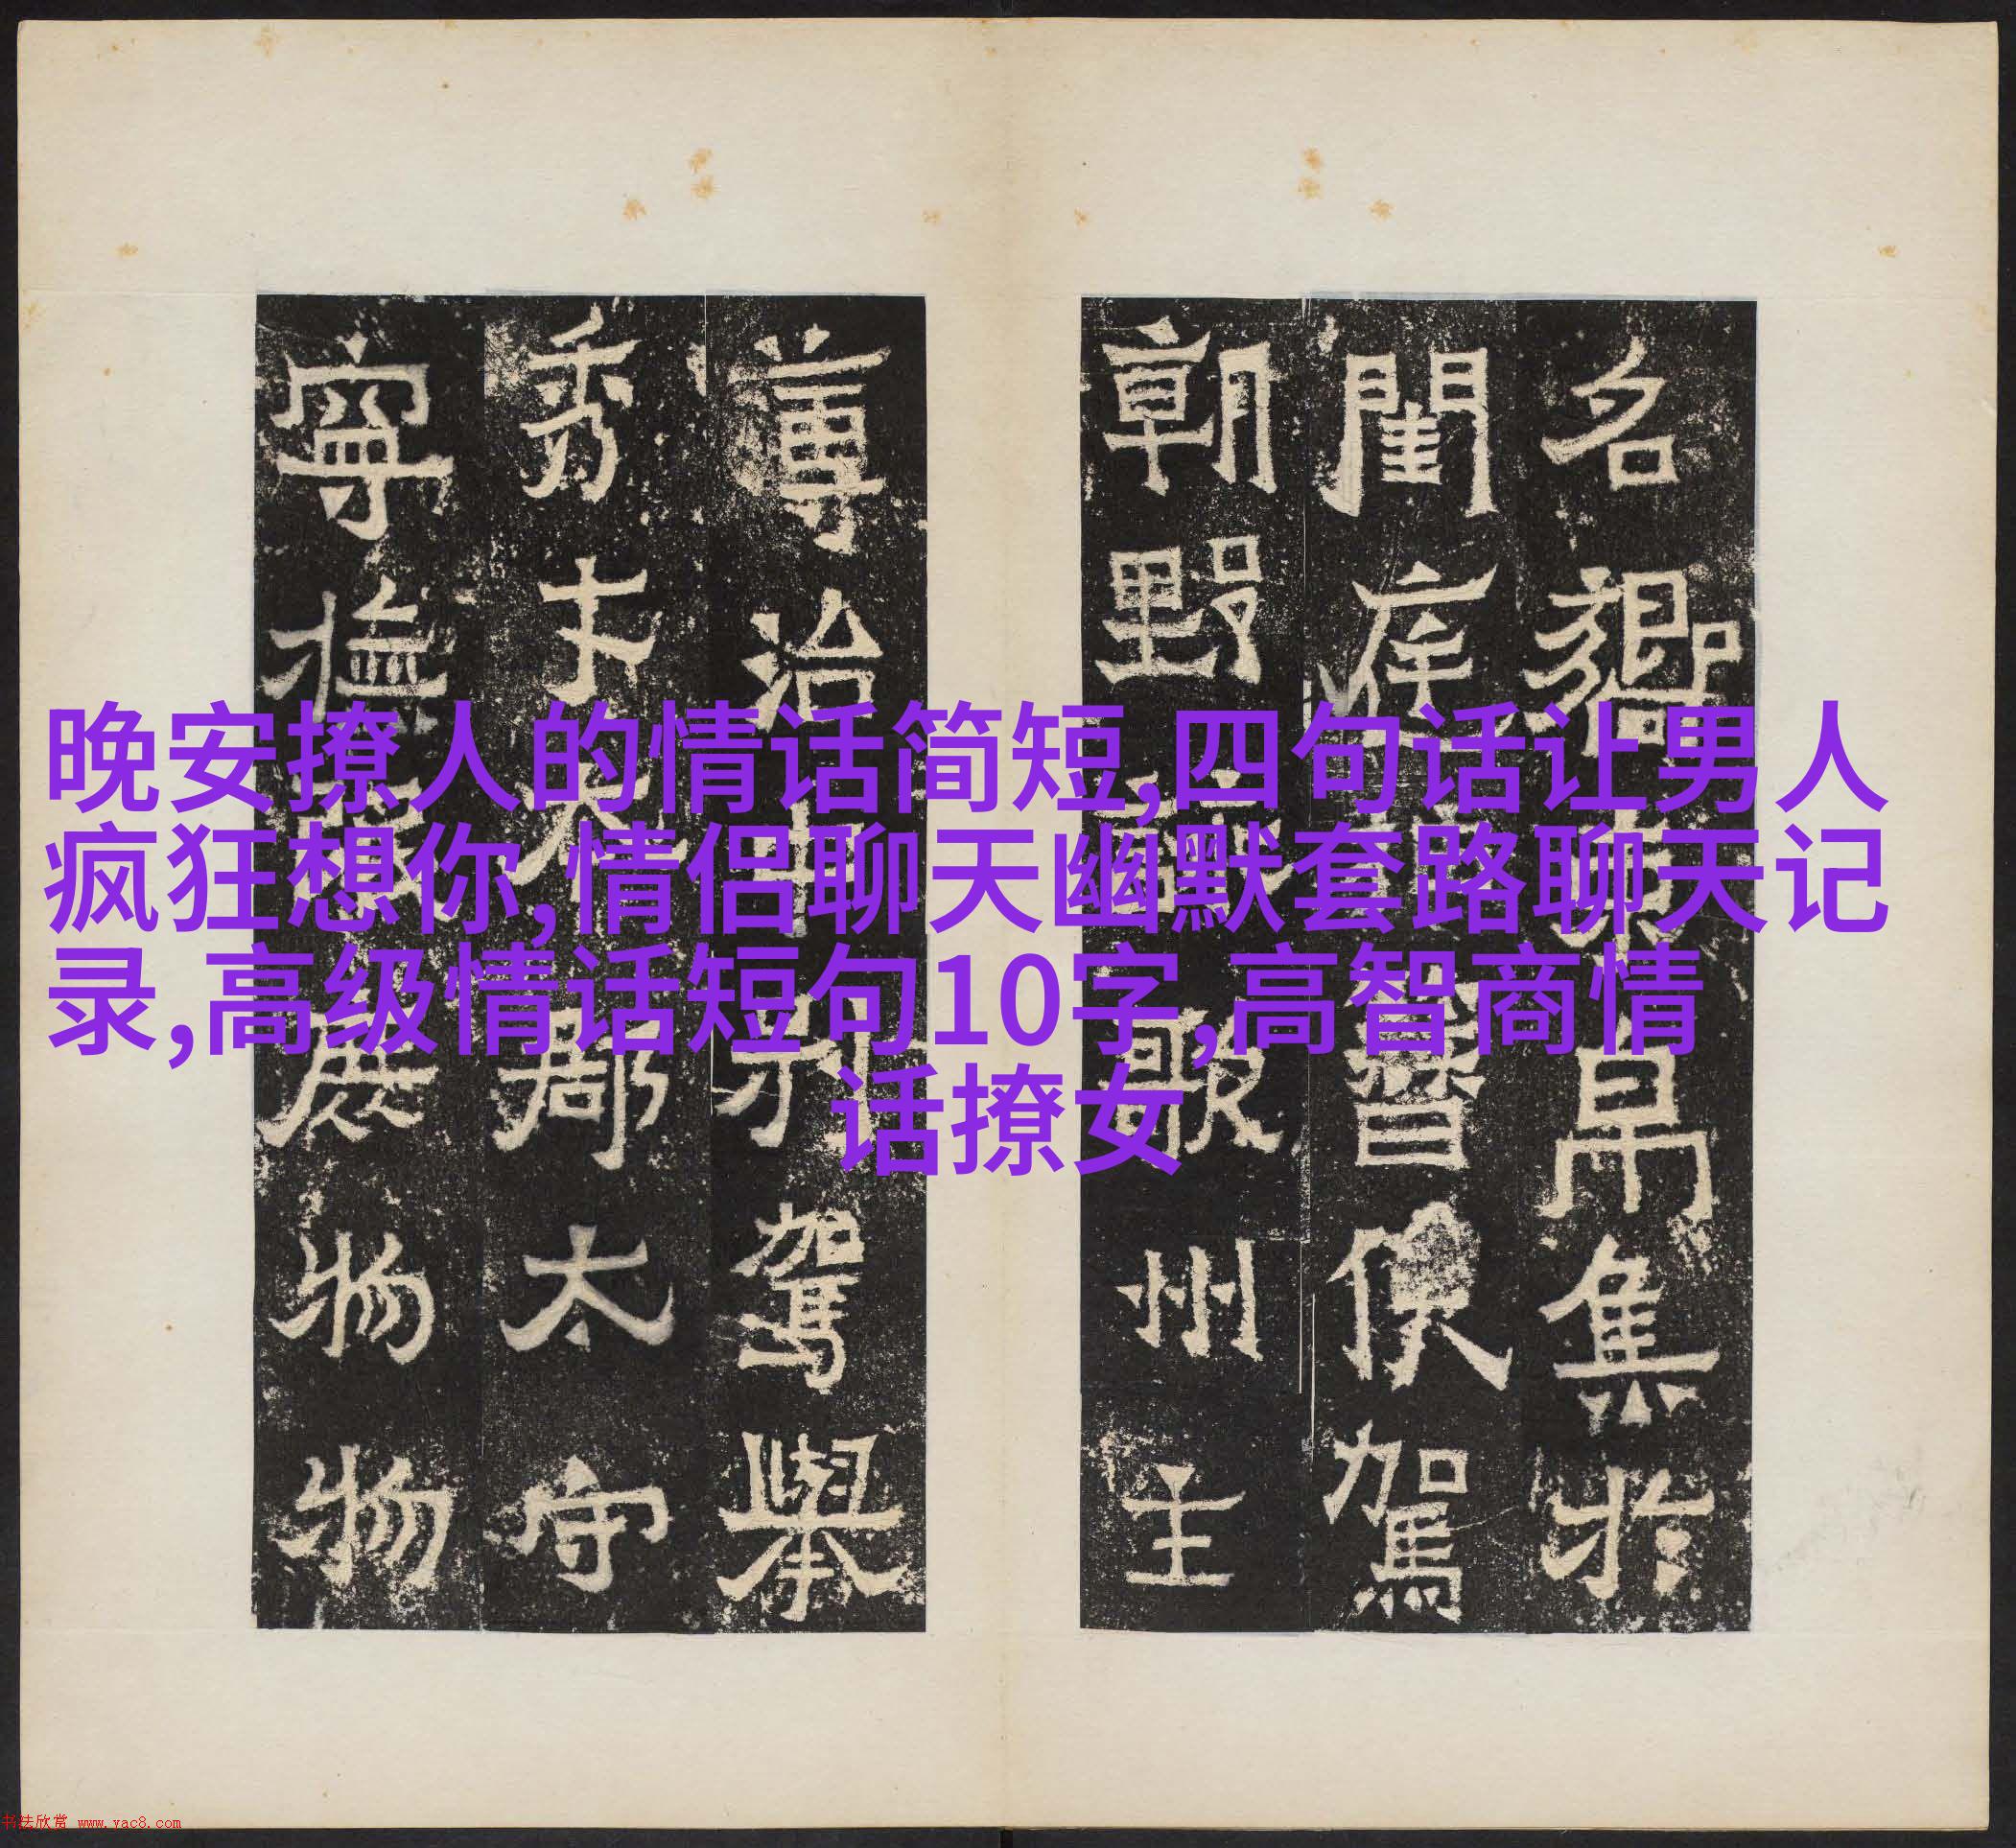 晚安撩人的情话简短,四句话让男人
疯狂想你,情侣聊天幽默套路聊天记
录,高级情话短句10字,高智商情
话撩女
名嚮束帛集於
閨庭簪俟駕
朝野詠歌州主
簿治中別駕舉
秀才本郡太守
寧撫氓庶物物
书法欣赏 www.yac8.com